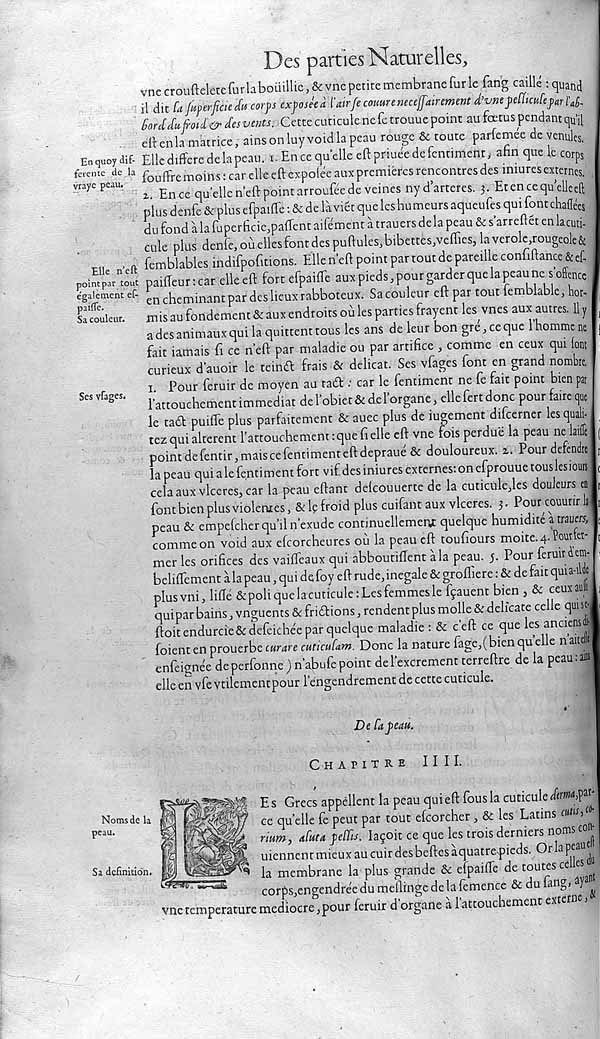 Des parties Naturelles,
vne crouſtelete ſur la boüillie, & vne petite membrane ſur le ſang caillé : quand
il dit ſa ſuperficie du corps expoſée à l'air ſe couure neceſſairement d'vne peſſicuſe par l'ab-
bord du froid & des vents. Cette cuticule ne ſe trouue point au fœtus pendant qu'il
eſt en la matrice, ains on luy void la peau rouge & toute parſemée de venules.
En quoy dif-
ferente de la
vraye peau.
Elle differe de la peau. 1. En ce qu'elle eſt priuée de ſentiment, afin que le corps
ſouffre moins : car elle eſt expoſée aux premières rencontres des iniures externes.
2. En ce qu'elle n'eſt point arrouſée de veines ny d'arteres. 3. Et en ce qu'elle eſt
plus denſe & plus eſpaiſſe : & de là viét que les humeurs aqueuſes qui ſont chaſſées
du fond à la ſuperficie, paſſent aiſément à trauers de la peau & s'arreſtét en la cuti-
cule plus denſe, où elles font des puſtules, bibettes, veſſies, la verole, rougeole &
Elle n'eſt
point par tout
également eſ-
paiſſe.
Sa couleur.
ſemblables indiſpoſitions. Elle n'eſt point par tout de pareille conſiſtance & eſ-
paiſſeur : car elle eſt fort eſpaiſſe aux pieds, pour garder que la peau ne s'offence
en cheminant par des lieux rabboteux. Sa couleur eſt par tout ſemblable, hor-
mis au fondement & aux endroits où les parties frayent les vnes aux autres. Il y
a des animaux qui la quittent tous les ans de leur bon gré, ce que l'homme ne
fait iamais ſi ce n'eſt par maladie ou par artifice, comme en ceux qui ſont
curieux d'auoir le teinct frais & delicat. Ses vſages ſont en grand nombre.
Ses vſages.
1. Pour ſeruir de moyen au tact : car le ſentiment ne ſe fait point bien par
l'attouchement immediat de l'obiet & de l'organe, elle ſert donc pour faire que
le tact puiſſe plus parfaitement & auec plus de iugement diſcerner les quali-
tez qui alterent l'attouchement : que ſi elle eſt vne fois perduë la peau ne laiſſe
point de ſentir, mais ce ſentiment eſt depraué & douloureux. 2. Pour defendre
la peau qui a le ſentiment fort vif des iniures externes : on eſprouue tous les iours
cela aux vlceres, car la peau eſtant deſcouuerte de la cuticule, les douleurs en
ſont bien plus violentes, & le froid plus cuiſant aux vlceres. 3. Pour couurir la
peau & empeſcher qu'il n'exude continuellement quelque humidité à trauers,
comme on void aux eſcorcheures où la peau eſt touſiours moite. 4. Pour fer-
mer les orifices des vaiſſeaux qui abboutiſſent à la peau. 5. Pour ſeruir d'em-
belliſſement à la peau, qui de ſoy eſt rude, inegale & groſſiere : & de fait qui a-il de
plus vni, liſſé & poli que la cuticule : Les femmes le ſçauent bien, & ceux auſſi
qui par bains, vnguents & frictions, rendent plus molle & delicate celle qui e-
ſtoit endurcie & deſeichée par quelque maladie : & c'eſt ce que les anciens di-
ſoient en prouerbe curare cuticuſam. Donc la nature ſage, (bien qu'elle n'ait eſté
enſeignée de perſonne) n'abuſe point de l'excrement terreſtre de la peau : ains
elle en vſe vtilement pour l'engendrement de cette cuticule.
De ſa peau.
CHAPITRE IIII.
Noms de la
peau.
LEs Grecs appellent la peau qui eſt ſous la cuticule derma, par-
ce qu'elle ſe peut par tout eſcorcher, & les Latins cutis, co-
rium, aſuta peſſis. Iaçoit ce que les trois derniers noms con-
uiennent mieux au cuir des beſtes à quatre pieds. Or la peau eſt
Sa definition.
la membrane la plus grande & eſpaiſſe de toutes celles du
corps, engendrée du meſlinge de la ſemence & du ſang, ayant
vne temperature mediocre, pour ſeruir d'organe à l'attouchement externe, &